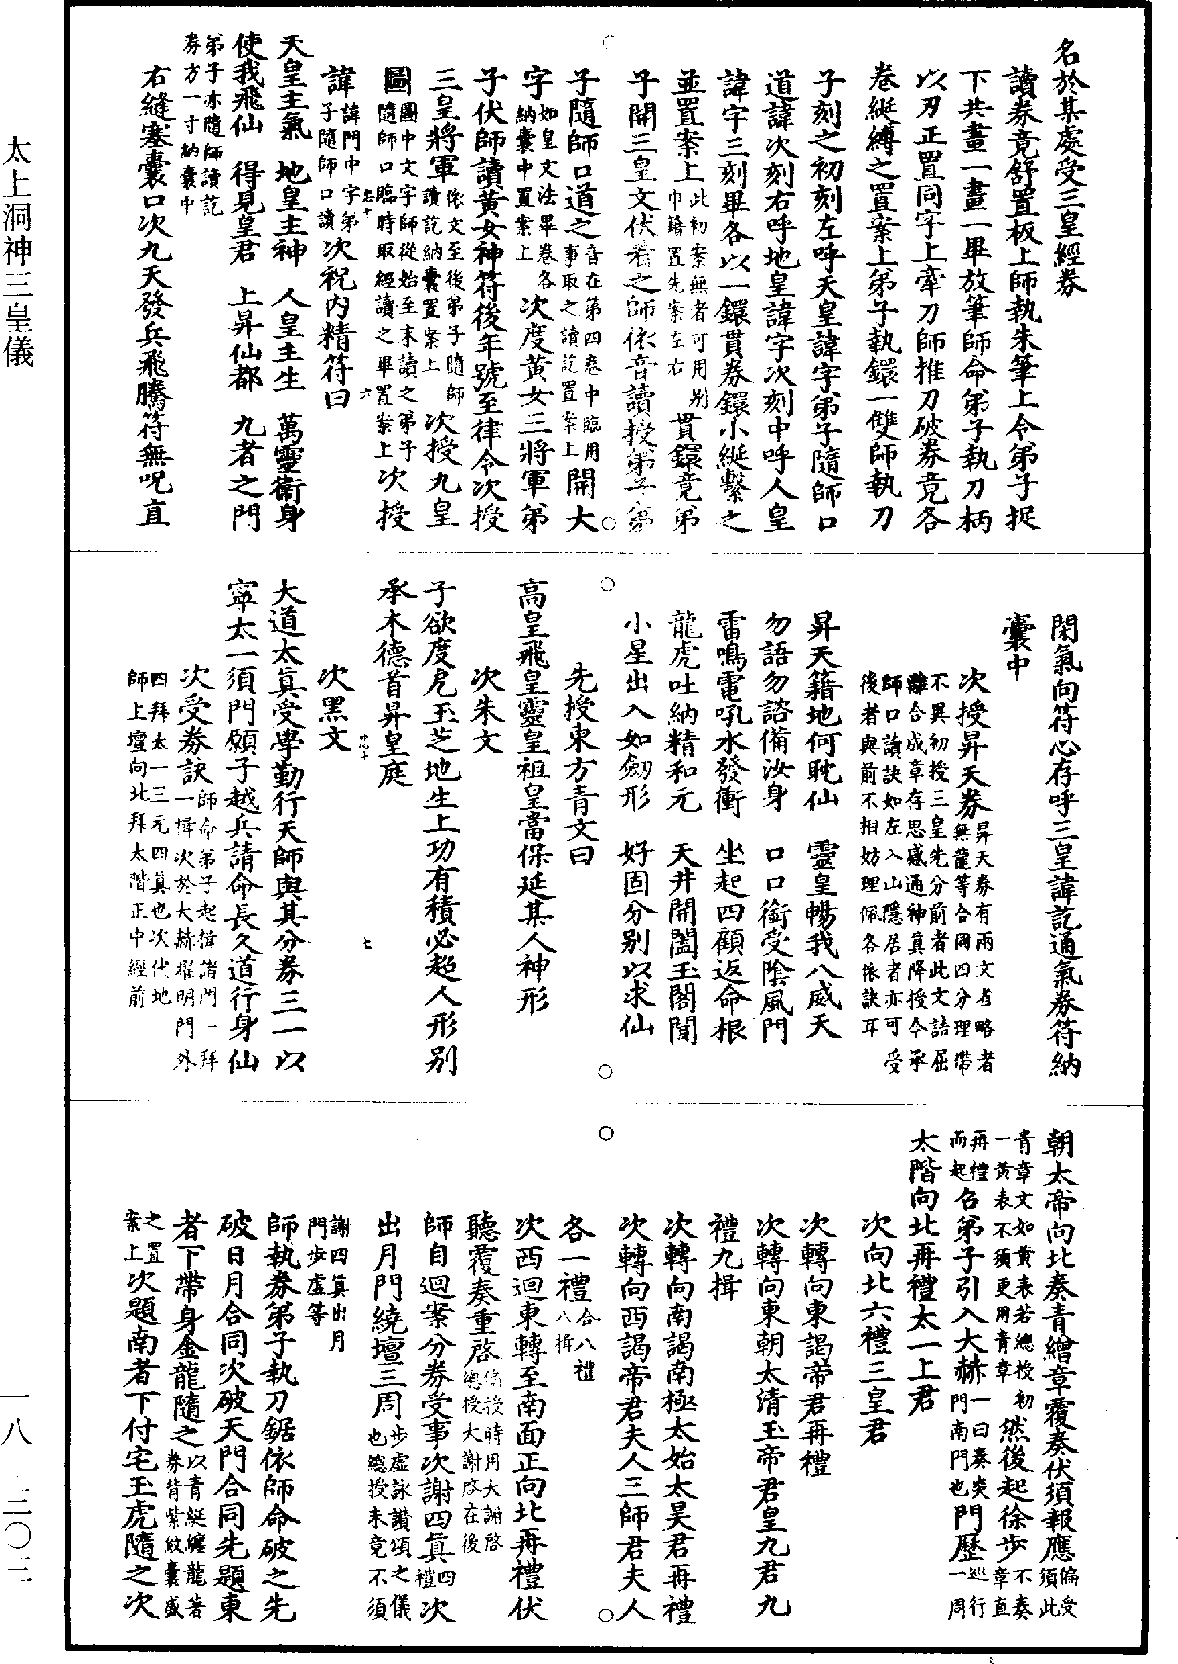 名於某處受三皇經券
讀券竟舒置板上師執朱筆上令弟子捉
下共畫一畫一畢放筆師命弟子執刀柄
以刃正置同字上牽刀師推刀破券竟各
卷綖縛之置案上弟子執鐶一雙師執刀
子刻之初刻左呼天皇諱字弟子隨師口
道諱次刻右呼地皇諱字次刻中呼人皇
諱字三刻畢各以一鐶貫券鐶小綖繫之
並置案上此初案無者可用別巾籍置先案左右貫鐶竟弟
子開三皇文伏著之師依音讀授弟子弟
子隨師口道之音在第四卷中臨用事取之讀訖置案上開大
字如皇文法畢卷各納囊中置案上次度黃女三將軍弟
子伏師讀黃女神符後年號至律令次授
三皇將軍依文至後弟子隨師讀訖納囊置案上次授九皇
圖圖中文字師從始至末讀之弟子隨師口臨時取經讀之畢置案上次授
諱諱門中字弟子隨師口讀次祝內精符曰
天皇主氣 地皇主神 人皇主生 萬靈衛身
使我飛仙 得見皇君 上昇仙都 九者之門
弟子亦隨師讀訖券方一寸納囊中
右縫塞囊口次九天發兵飛騰符無呪直
閉氣向符心存呼三皇諱訖通氣券符納
囊中
次授昇天券昇天券有兩文省略者無籠等合同四分理帶
不異初授三皇先分前者此文詰屈離合成章存思感通神真降授今承
師口讀訣如左入山隱居者亦可受後者與前不相妨理佩各依訣耳
昇天籍地何耽仙 靈皇暢我八威天
勿語勿諮備汝身 口口銜受陰風門
雷鳴電吼水發衝 坐起四顧返命根
龍虎吐納精和元 天井開闔玉閣闌
小星出入如劒形 好固分別以求仙
先授東方青文曰
高皇飛皇靈皇祖皇當保延某人神形
次朱文
子欲度庀玉芝地生上功有積必超人形別
承木德首昇皇庭
次黑文
大道太真受學勤行天師與其分券三一以
寧太一須門願子越兵請命長久道行身仙
次受券訣師命弟子起揖諸門一拜一揖次於大赫曜明門外
四拜太一三元四真也次伏地師上壇向北拜太階正中經前
朝太帝向北奏青繒章覆奏伏須報應偏受須此
青章文如黃表若總授初一黃表不須更用青章然後起徐步不奏章直
再禮而起召弟子引入大赫一曰奏爽門南門也門歷巡行一周
太階向北再禮太一上君
次向北六禮三皇君
次轉向東謁帝君再禮
次轉向東朝太清玉帝君皇九君九
禮九揖
次轉向南謁南極太始太昊君再禮
次轉向西謁帝君夫人三師君夫人
各一禮合八禮八揖
次西迴東轉至南面正向北再禮伏
聽覆奏重啓偏授時用大謝啓總授大謝啓在後
師自迴案分券受事次謝四真四禮次
出月門繞壇三周步虛詠讚頌之儀也總授未竟不須
謝四真出月門步虛等
師執券弟子執刀鋸依師命破之先
破日月合同次破天門合同先題東
者下帶身金龍隨之以青綖纏龍著券背紫紋囊盛
之置案上次題南者下付宅玉虎隨之次
太上洞神三皇儀
一八 三〇三